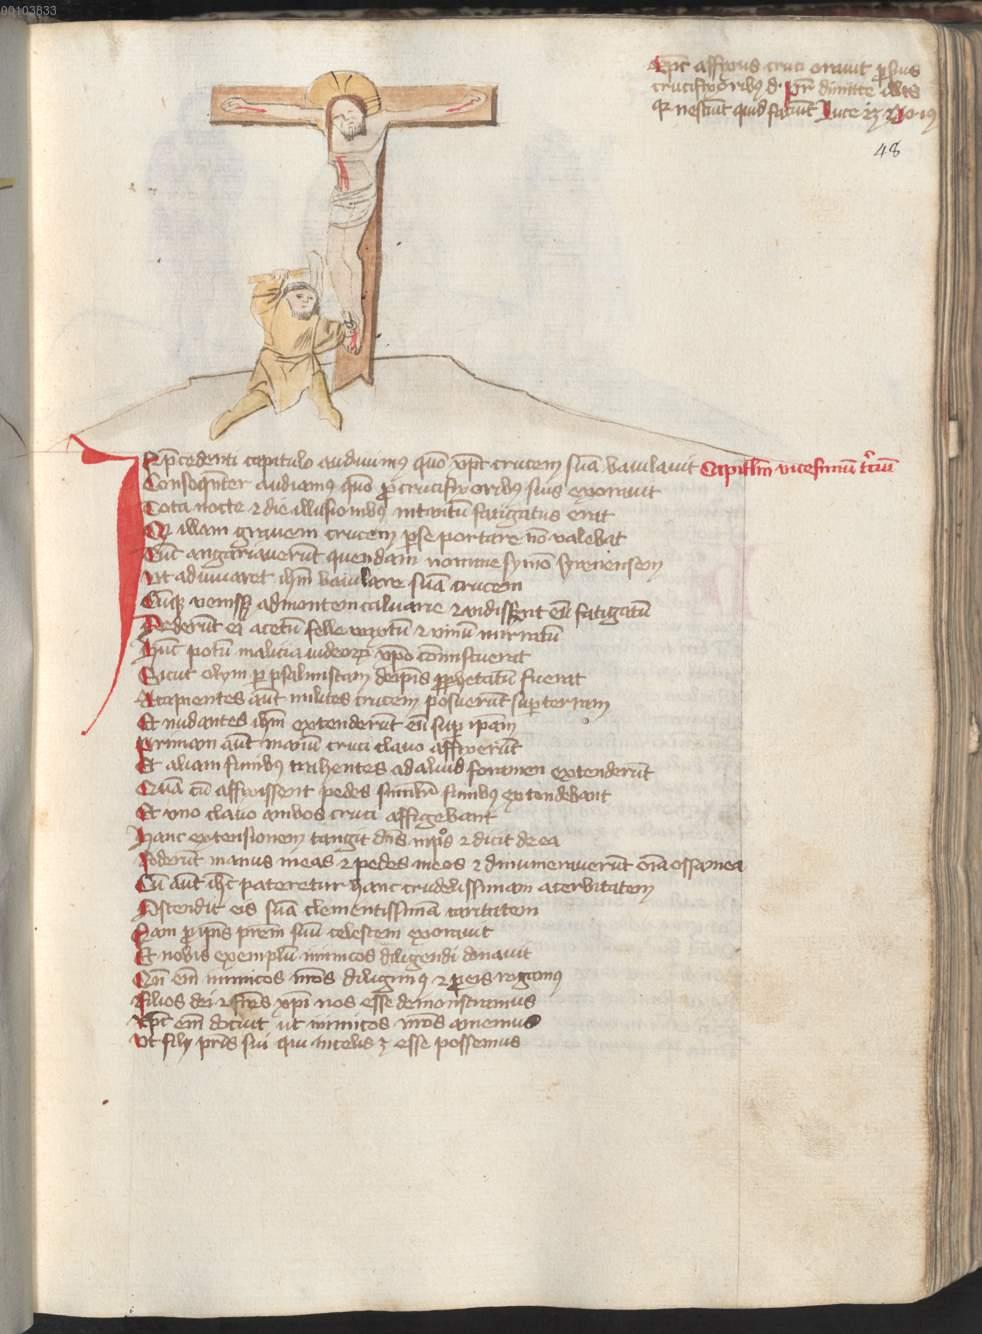 00103833
Xpc affixus cruci orauit pro suis
crucifixoribus d. Pr dimitte illis
quia nesciunt quid faciunt Luce
48
In precedenti capitulo audiuimus quomo xpc crucem suā baiulauit Capitlm vicesimum tciū
Consequenter audiamus quō pro crucifixoribus suis exorauit
Tota nocte & die illusionibus intantū fatigatus erat
Qd illam grauem crucem per se portare nō valebat
Tūc angariauerūt quendam nomine symō syrenensem
Ut adiuuaret ihm baiulare suā crucem
Cūqz venissent ad montem caluarie & vidissent eū fatigatū
Dederūt ei acetū felle mixtū & vinum mirratū
Hūc potū malicia iudeorum xpo cōmiscuerat
Sicut olym per psalmistam de ipsis prophetatū fuerat
Accipientes aūt milites crucem posuerūt super terram
Et nudantes ihm extenderūt eū super ipam
Primam aūt manū cruci clauo affixerūt
Et aliam funibus trahentes ad aliud foramen extenderūt
Quā cū affixissent pedes similit funibus extendebant
Et vno clauo ambos cruci affigebant
Hanc extensionem tangit dns ips & dicit de ea
Foderūt manus meas & pedes meos & dinumerauerūt oīa ossa mea
Cū aūt ihc pateretur hanc crudelissimam acerbitatem
Ostendit eis suā clementissimā caritatem
Nam pro ipis prem suū celestem exorauit
Et nobis exemplū inimicos diligendi donauit
Qn em inimicos nros diligimus & pro eis rogamus
Filios dei & frēs xpi nos esse demonstramus
Xpc em docuit ut inimicos nros amemus
Ut filii pris sui qui in celis esse possemus